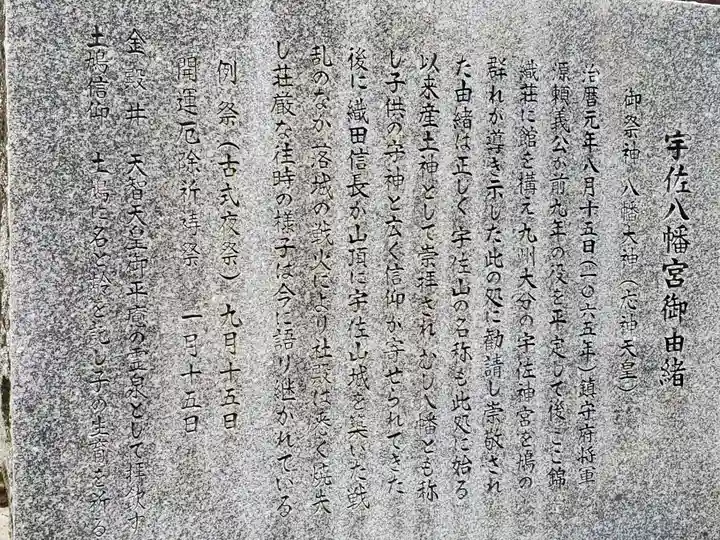 宇佐八幡宮御由緒
御祭神 八幡大神(応神天皇)
治暦元年八月十五日(一〇六五年)鎮守府将軍
源頼義公が前九年の役を平定して後ここ錦
織荘に館を構え九州大分の宇佐神宮を鳩の
群れが導き示した此の処に勧請し崇敬され
た由緒は正しく宇佐山の名称も此処に始る
以来産土神として崇拝されむし八幡とも称
し子供の守神と広く信仰が寄せられてきた
後に織田信長が山頂に宇佐山城を築いた戦
乱のなか落城の戦火により社殿は悉く焼失
し荘厳な往時の様子は今に語り継がれている
例祭(古式夜祭) 九月十五日
開運厄除祈祷祭 一月十五日
金殿井 天智天皇御平癒の霊泉として拝飲す
土鳩信仰 土鳩に名と齢を記し子の生育を祈る